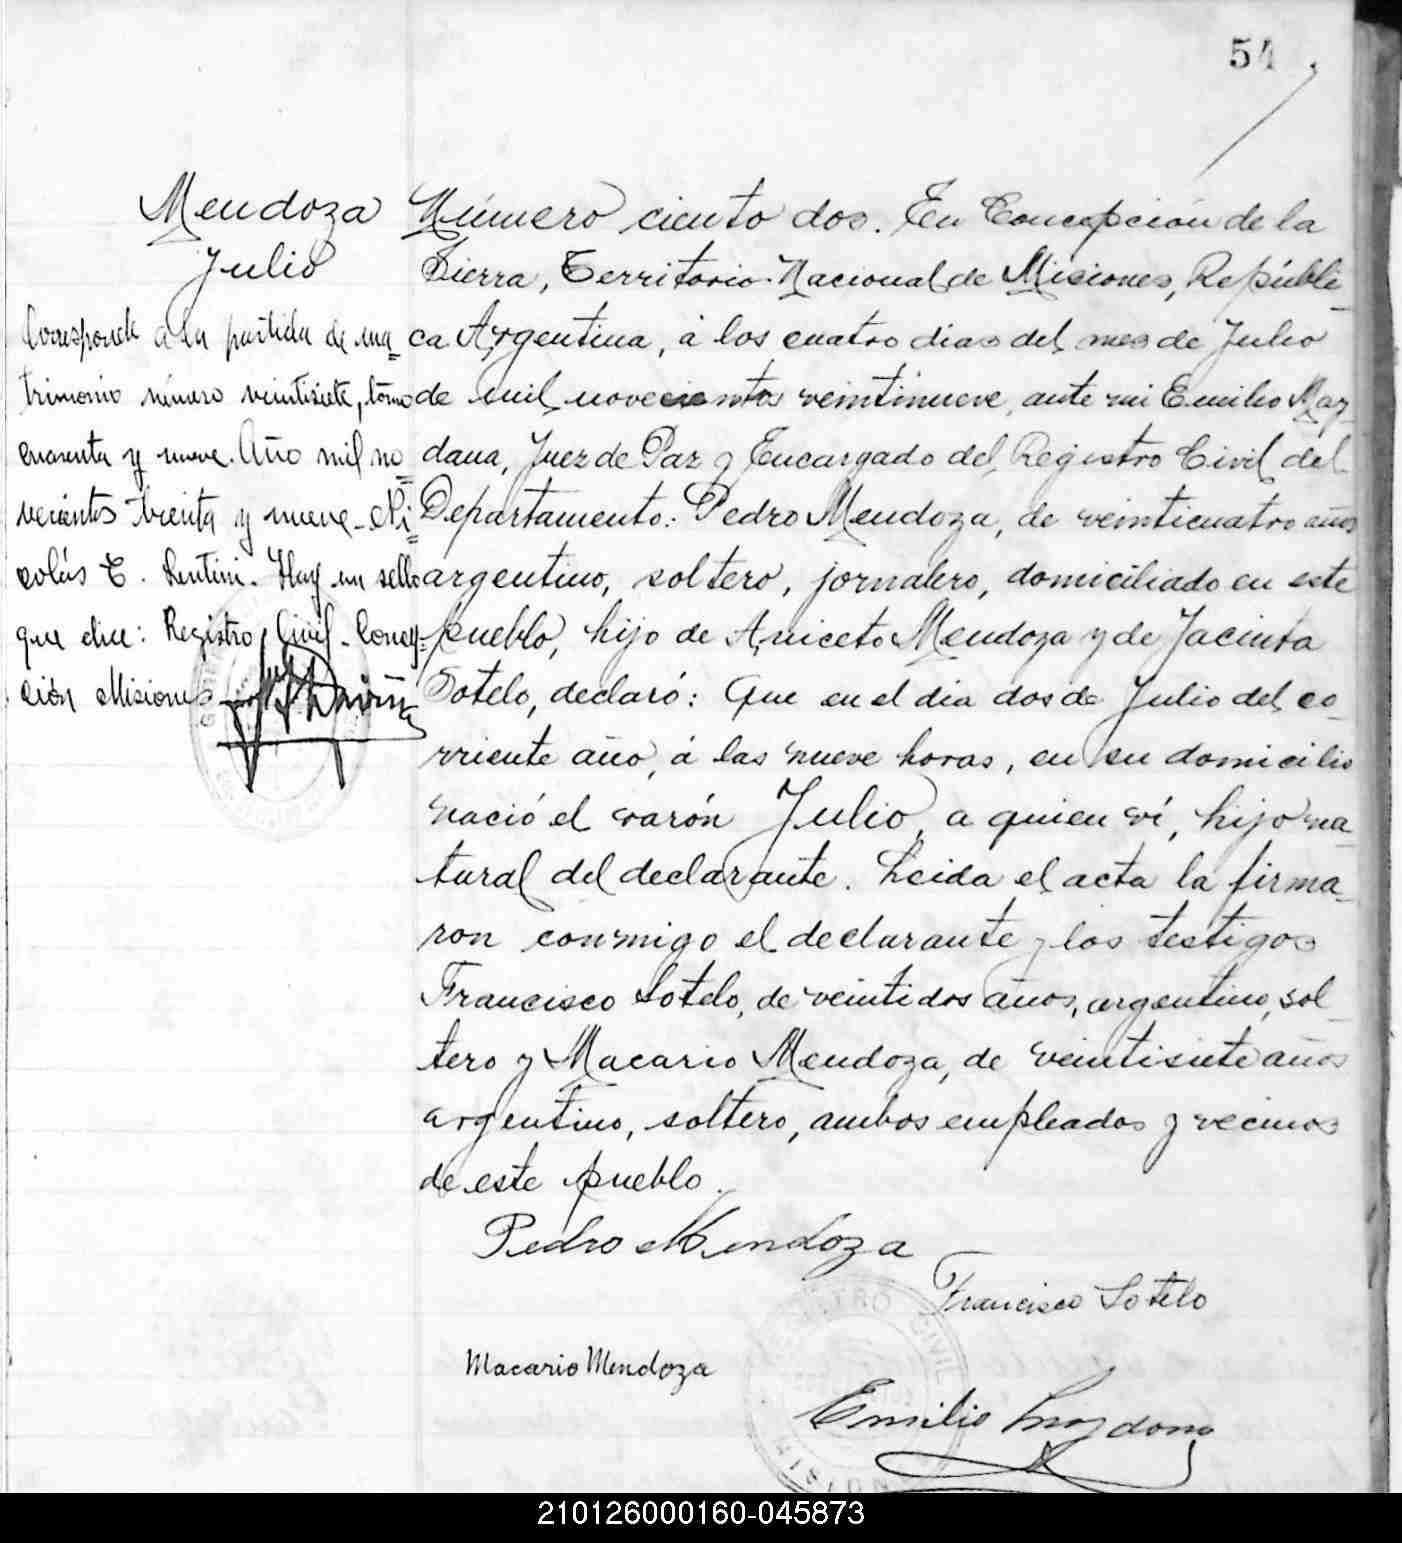 54
Mendoza
Julio
Corresponde a la partida de ma=
trimonio número veintisiete, tomo
cuarenta y nueve. Año mil no=
vecientos treinta y nueve - Ni=
colás C. Lentini. Hay un sello
que dice: Registro Civil - Concep=
ción Misiones
Número ciento dos. En Concepción de la
Sierra, Territorio Nacional de Misiones, Repúbli-
ca Argentina, á los cuatro dias del mes de Julio
de mil novecientos veintinueve, ante mi Emilio Maz-
dana, Juez de Paz y Encargado del Registro Civil del
Departamento: Pedro Mendoza, de veinticuatro años
argentino, soltero, jornalero, domiciliado en este
pueblo, hijo de Aniceto Mendoza y de Jacinta
Sotelo, declaró: Que en el dia dos de Julio del co-
rriente año, á las nueve horas, en su domicilio
nació el varón Julio, a quien ví, hijo na-
tural del declarante. Leida el acta la firma-
ron conmigo el declarante y los testigos
Francisco Sotelo, de veintidos años, argentino, sol-
tero y Macario Mendoza, de veintisiete años
argentino, soltero, ambos empleados y vecinos
de este pueblo.
Pedro Mendoza
Francisco Sotelo
Macario Mendoza
REGISTRO CIVIL
MISIONES
Emilio Mazdana
210126000160-045873